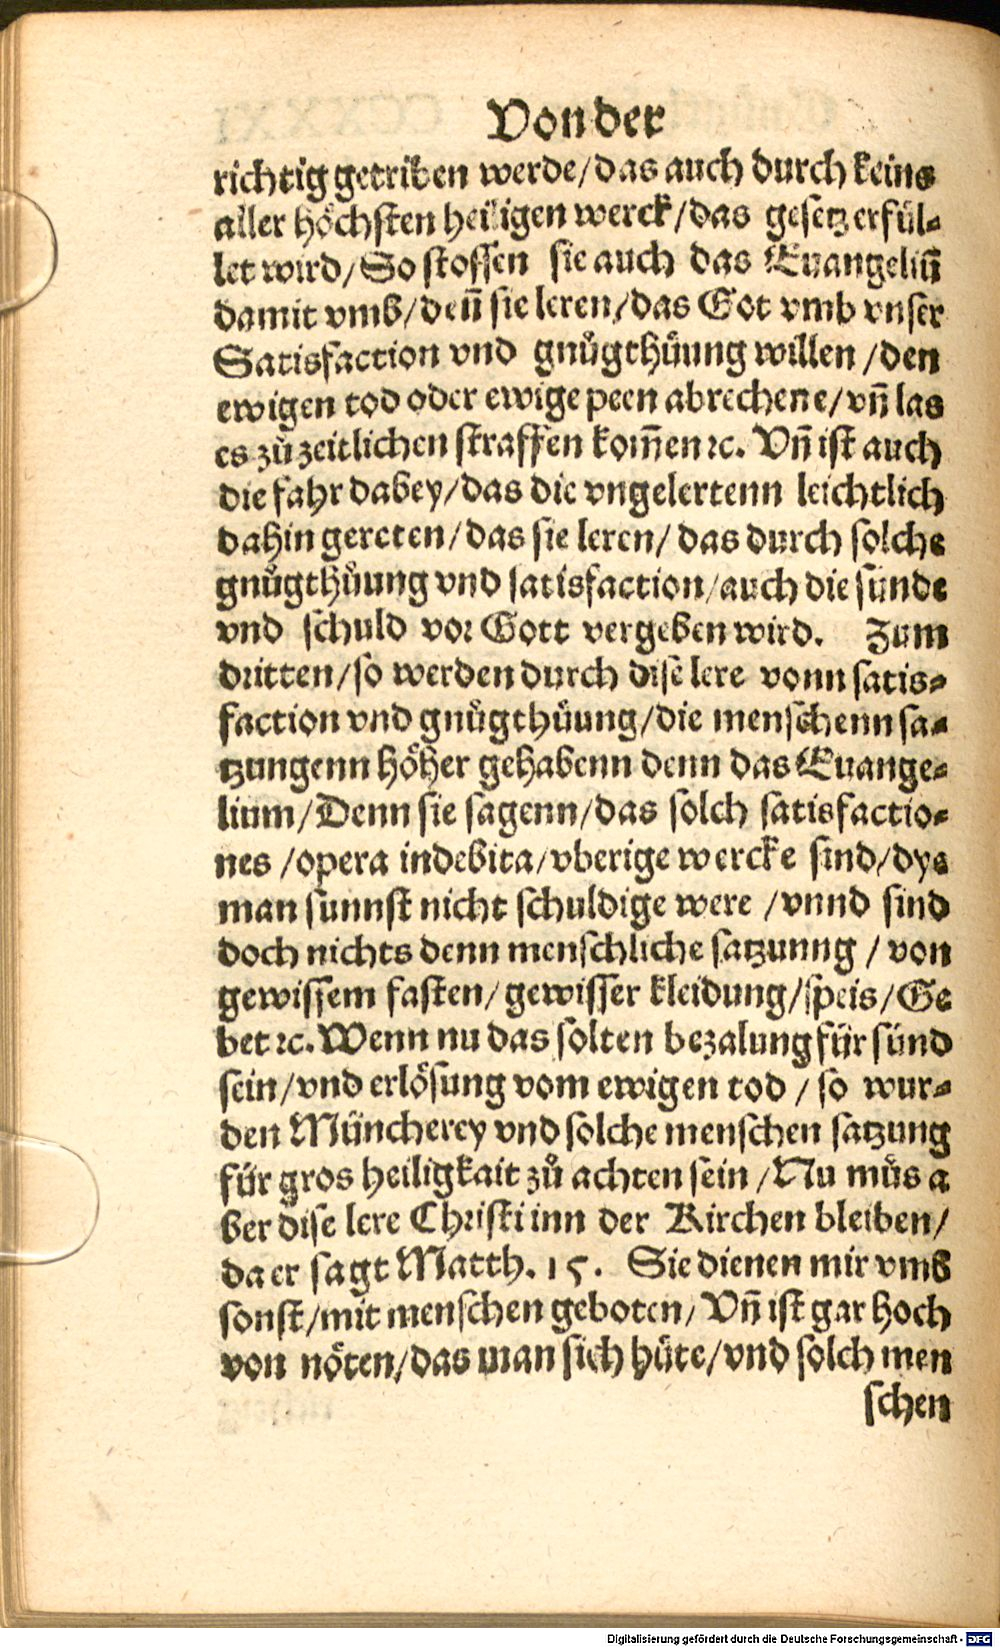 Von der
richtig getriben werde/das auch durch keins
aller höchsten heiligen werck/das gesetz erfül-
let wird/So stossen sie auch das Euangeliū
damit vmb/deñ sie leren/das Got vmb vnser
Satisfaction vnd gnůgthůung willen/den
ewigen tod oder ewige peen abrechene/vñ las
es zů zeitlichen straffen kom̄en ꝛc. Vñ ist auch
die fahr dabey/das die vngelertenn leichtlich
dahin gereten/das sie leren/ das durch solche
gnůgthůung vnd satisfaction/auch die sünde
vnd schuld vor Gott vergeben wird. Zum
dritten/so werden durch dise lere vonn satis-
faction vnd gnůgthůung/die menschenn sa-
tzungenn höher gehabenn denn das Euange-
lium/Denn sie sagenn/das solch satisfactio-
nes /opera indebita/vberige wercke sind/dye
man sunnst nicht schuldige were /vnnd sind
doch nichts denn menschliche satzunng / von
gewissem fasten/ gewisser kleidung/speis/Ge
bet ꝛc. Wenn nu das solten bezalung für sünd
sein/vnd erlösung vom ewigen tod / so wur-
den Müncherey vnd solche menschen satzung
für gros heiligkait zů achten sein /Nu můs a
ber dise lere Christi inn der Kirchen bleiben/
da er sagt Matth. 15. Sie dienen mir vmb
sonst/mit menschen geboten/ Vñ ist gar hoch
von nöten/das man sich hüte/vnd solch men
schen
Digitalisierung gefördert durch die Deutsche Forschungsgemeinschaft - DFG